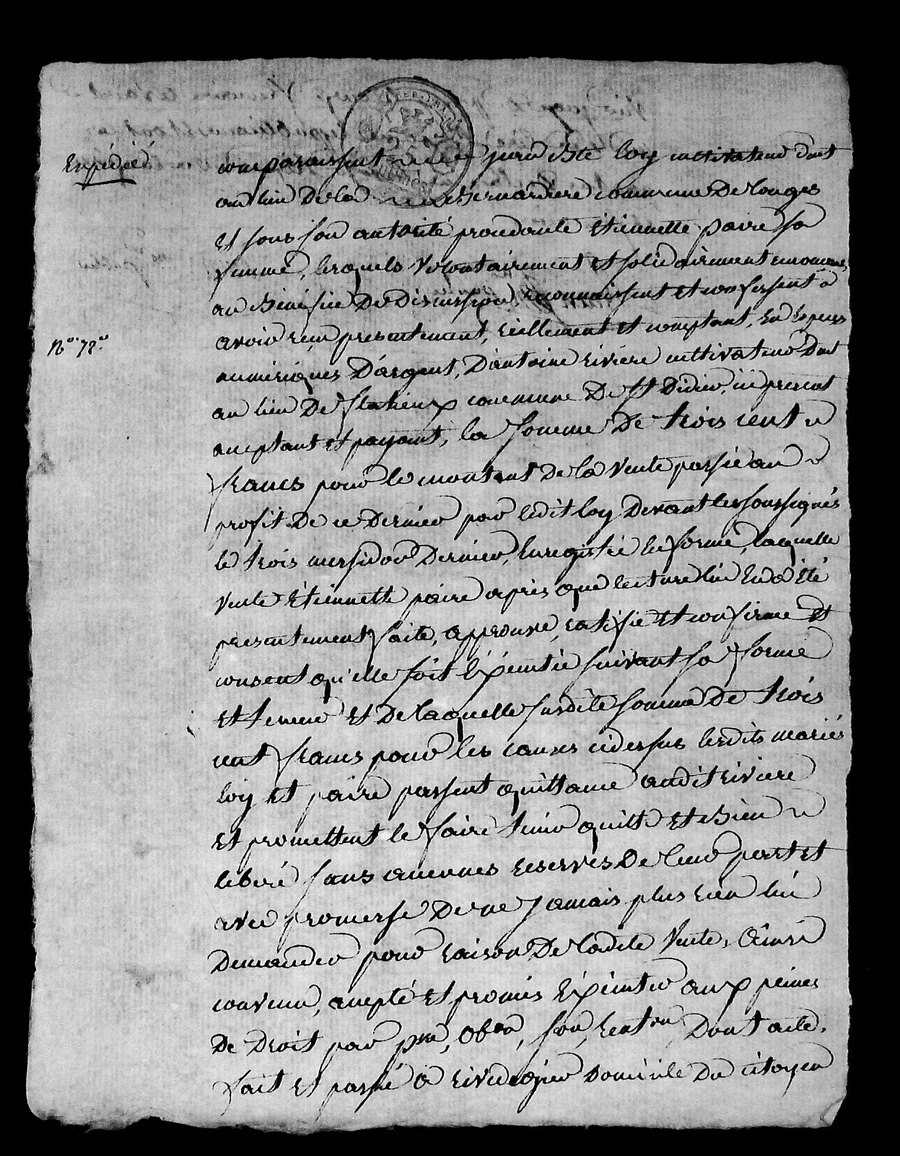 Expédié
N.º 78.
comparaissent jean Bte loy cultivateur dmt
au lieu De la Bernardiere commune De longes
Et sous son autorité procedante Etiennette paire sa
femme, lesquels volontairement Et solidairement
au Bénéfice De Discussion, reconnaissent et confessent
avoir reçu presentement, réellement et comptant, En Espèces
numériques D'argent, D'antoine riviere cultivateur Dmt
au lieu De commune De St Didier, ici present
aceptant Et payant, la somme De trois cent
francs pour le montant De la vente passée au
profit De ce Dernier par ledit loy Devant les soussignés
le trois messidor Dernier, Enregistrée En forme, laquelle
vente Etiennette paire après que lecture lui En a Eté
presentement faite, approuve, ratifie Et confirme Et
consent qu'elle soit Exécutée suivant sa forme
Et teneur Et De laquelle susdite somme De trois
cent francs pour les causes cidessus lesdits mariés
loy Et paire passent quittance audit riviere
Et promettent le faire tenir quitte Et Bien
liberé sans aucunes reserves De leur part Et
avec promesse De ne jamais plus rien lui
Demander pour raison De ladite vente, Ainsi
convenu, acepté et promis Exécuter aux peines
De Droit par pm, obon, son, renton, Dont acte,
fait Et passé a rivedegier Domicile Du citoyen